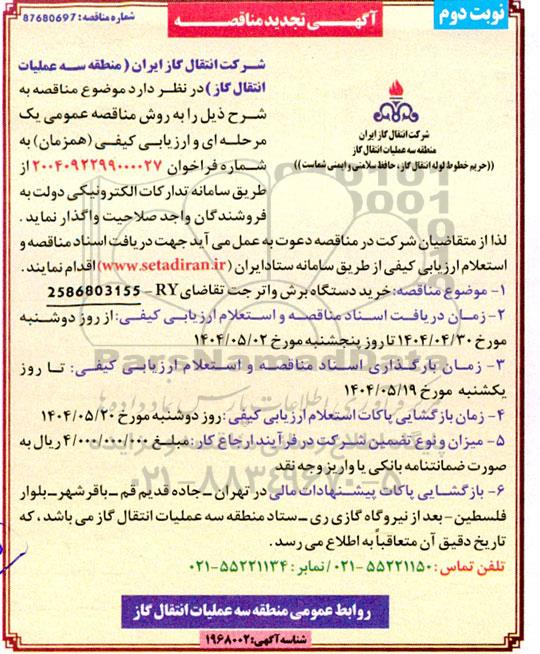 نوبت دوم
آگهی تجدید مناقصه
شماره مناقصه: 87680697
شرکت انتقال گاز ایران
منطقه سه عملیات انتقال گاز
((حریم خطوط لوله انتقال گاز، حافظ سلامتی و ایمنی شماست))
شرکت انتقال گاز ایران (منطقه سه عملیات
انتقال گاز) در نظر دارد موضوع مناقصه به
شرح ذیل را به روش مناقصه عمومی یک
مرحله ای و ارزیابی کیفی (همزمان) به
شماره فراخوان ۲۰۰۴۰۹۲۲۹۹۰۰۰۰۲۷ از
طریق سامانه تدارکات الکترونیکی دولت به
فروشندگان واجد صلاحیت واگذار نماید.
لذا از متقاضیان شرکت در مناقصه دعوت به عمل می آید جهت دریافت اسناد مناقصه و
استعلام ارزیابی کیفی از طریق سامانه ستاد ایران (www.setadiran.ir) اقدام نمایند.
۱- موضوع مناقصه: خرید دستگاه برش واتر جت تقاضای RY – 2586803155
۲- زمان دریافت اسناد مناقصه و استعلام ارزیابی کیفی: از روز دوشنبه
مورخ ۱۴۰۴/۰۴/۳۰ تا روز پنجشنبه مورخ ۱۴۰۴/۰۵/۰۲
۳- زمان بارگذاری اسناد مناقصه و استعلام ارزیابی کیفی: تا روز
یکشنبه مورخ ۱۴۰۴/۰۵/۱۹
۴- زمان بازگشایی پاکات استعلام ارزیابی کیفی: روز دوشنبه مورخ ۱۴۰۴/۰۵/۲۰
۵- میزان و نوع تضمین شرکت در فرآیند ارجاع کار: مبلغ ۴/۰۰۰/۰۰۰/۰۰۰ ریال به
صورت ضمانتنامه بانکی یا واریز وجه نقد
۶- بازگشایی پاکات پیشنهادات مالی در تهران – جاده قدیم قم – باقرشهر – بلوار
فلسطین – بعد از نیروگاه گازی ری – ستاد منطقه سه عملیات انتقال گاز می باشد، که
تاریخ دقیق آن متعاقباً به اطلاع می رسد.
تلفن تماس: ۵۵۲۲۱۱۵۰-۰۲۱ / نمابر: ۵۵۲۲۱۱۳۴-۰۲۱
روابط عمومی منطقه سه عملیات انتقال گاز
شناسه آگهی: ۱۹۶۸۰۰۲
ParsNamadData
۰۲۱-۸۸۳۴۹۶۷۰-۵